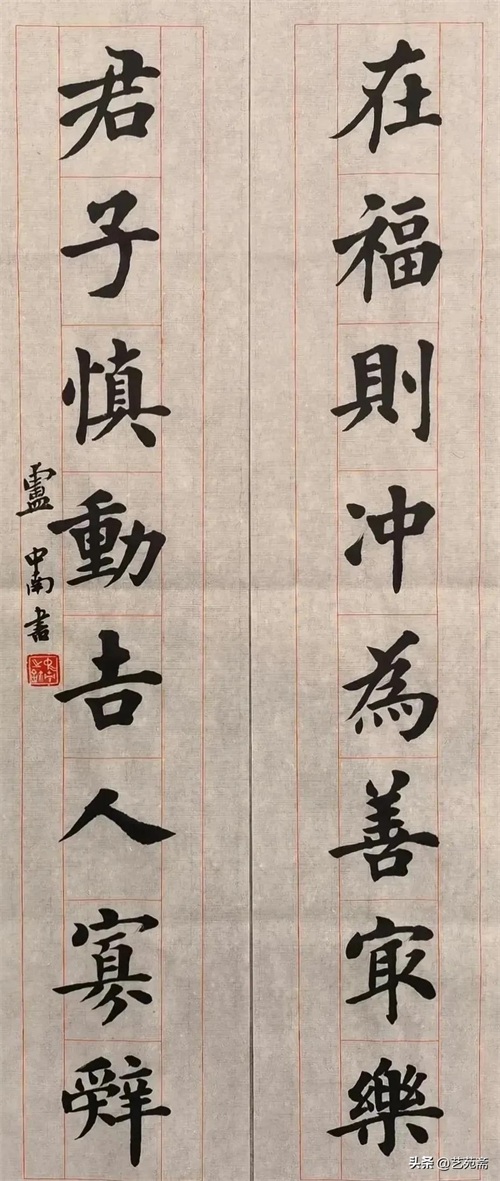 在福則冲為善㝡樂
君子慎動吉人寡辤
盧中南書
头条 @艺苑斋